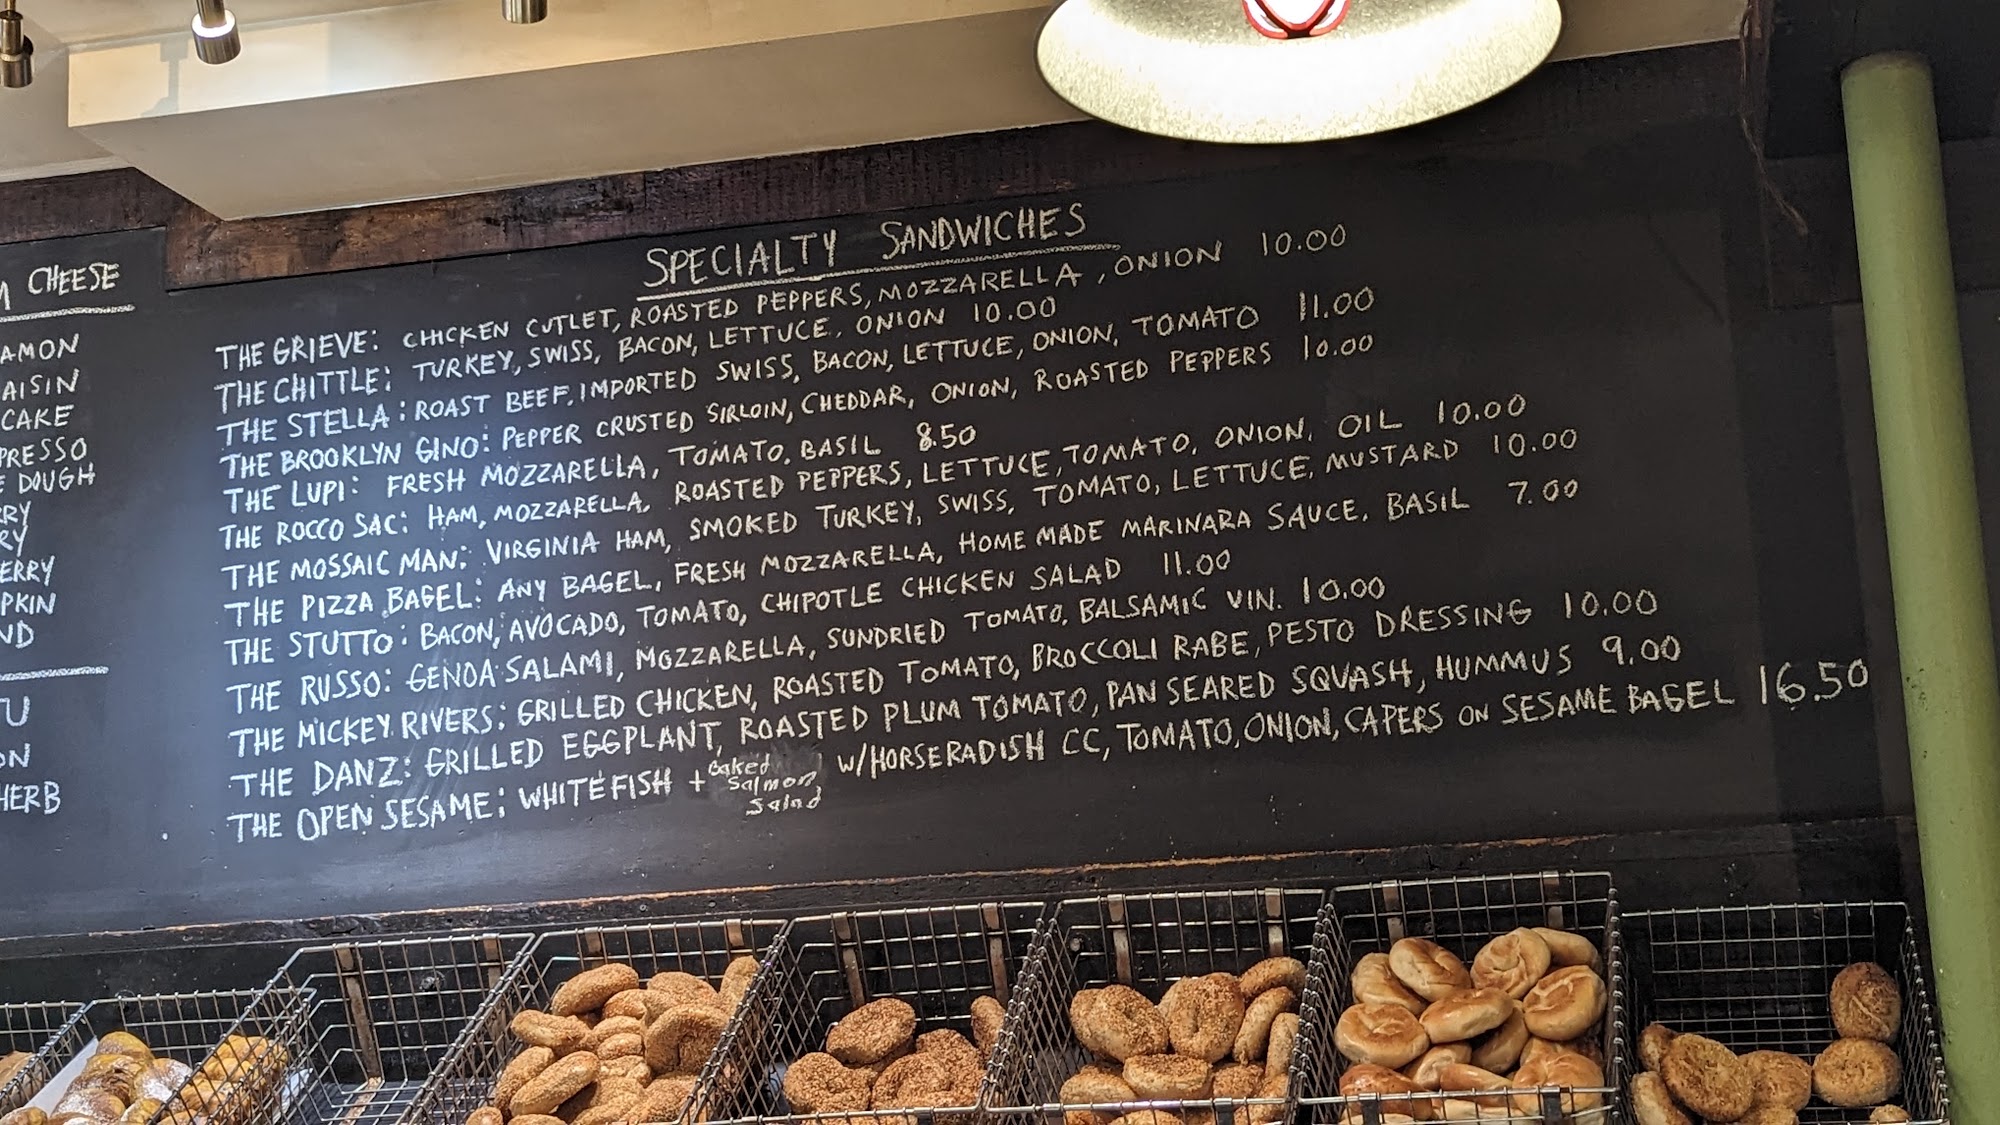 CHEESE
AMON
AISIN
CAKE
PRESSO
E DOUGH
RRY
RY
ERRY
PKIN
ND
TU
ON
HERB
SPECIALTY SANDWICHES
THE GRIEVE: CHICKEN CUTLET, ROASTED PEPPERS, MOZZARELLA, ONION 10.00
THE CHITTLE: TURKEY, SWISS, BACON, LETTUCE, ONION 10.00
THE STELLA: ROAST BEEF, IMPORTED SWISS, BACON, LETTUCE, ONION, TOMATO 11.00
THE BROOKLYN GINO: PEPPER CRUSTED SIRLOIN, CHEDDAR, ONION, ROASTED PEPPERS 10.00
THE LUPI: FRESH MOZZARELLA, TOMATO, BASIL 8.50
THE ROCCO SAC: HAM, MOZZARELLA, ROASTED PEPPERS, LETTUCE, TOMATO, ONION, OIL 10.00
THE MOSSAIC MAN: VIRGINIA HAM, SMOKED TURKEY, SWISS, TOMATO, LETTUCE, MUSTARD 10.00
THE PIZZA BAGEL: ANY BAGEL, FRESH MOZZARELLA, HOME MADE MARINARA SAUCE, BASIL 7.00
THE STUTTO: BACON, AVOCADO, TOMATO, CHIPOTLE CHICKEN SALAD 11.00
THE RUSSO: GENOA SALAMI, MOZZARELLA, SUNDRIED TOMATO, BALSAMIC VIN. 10.00
THE MICKEY RIVERS: GRILLED CHICKEN, ROASTED TOMATO, BROCCOLI RABE, PESTO DRESSING 10.00
THE DANZ: GRILLED EGGPLANT, ROASTED PLUM TOMATO, PAN SEARED SQUASH, HUMMUS 9.00
THE OPEN SESAME: WHITEFISH + Baked Salmon Salad W/HORSERADISH CC, TOMATO, ONION, CAPERS ON SESAME BAGEL 16.50